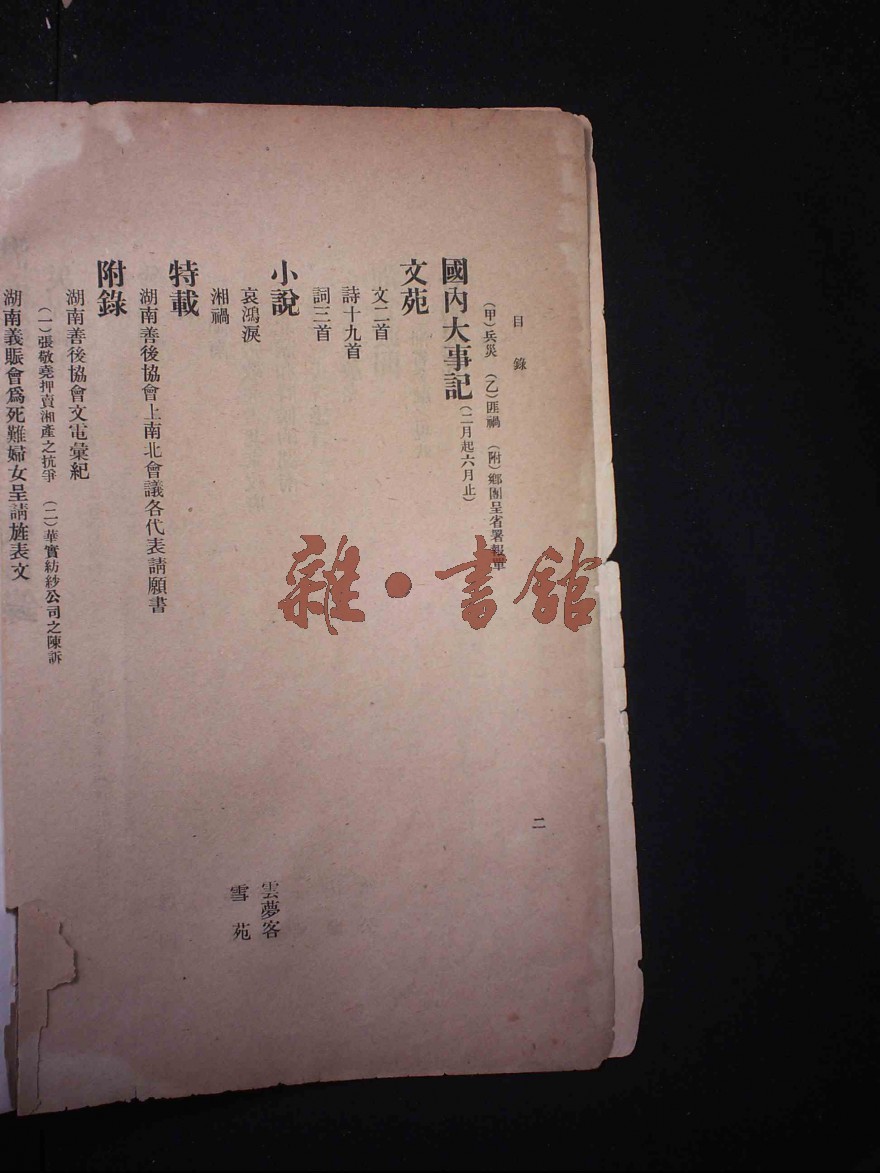 目錄
二
(甲)兵災 (乙)匪禍 (附)鄉團呈省署報單
國內大事記(二月起六月止)
文苑
文二首
詩十九首
詞三首
小說
哀鴻淚 雲夢客
湘禍 雪苑
特載
湖南善後協會上南北會議各代表請願書
附錄
湖南善後協會文電彙紀
(一)張敬堯押賣湘產之抗爭 (二)華實紡紗公司之陳訴
湖南義賑會爲死難婦女呈請旌表文
雜·書館